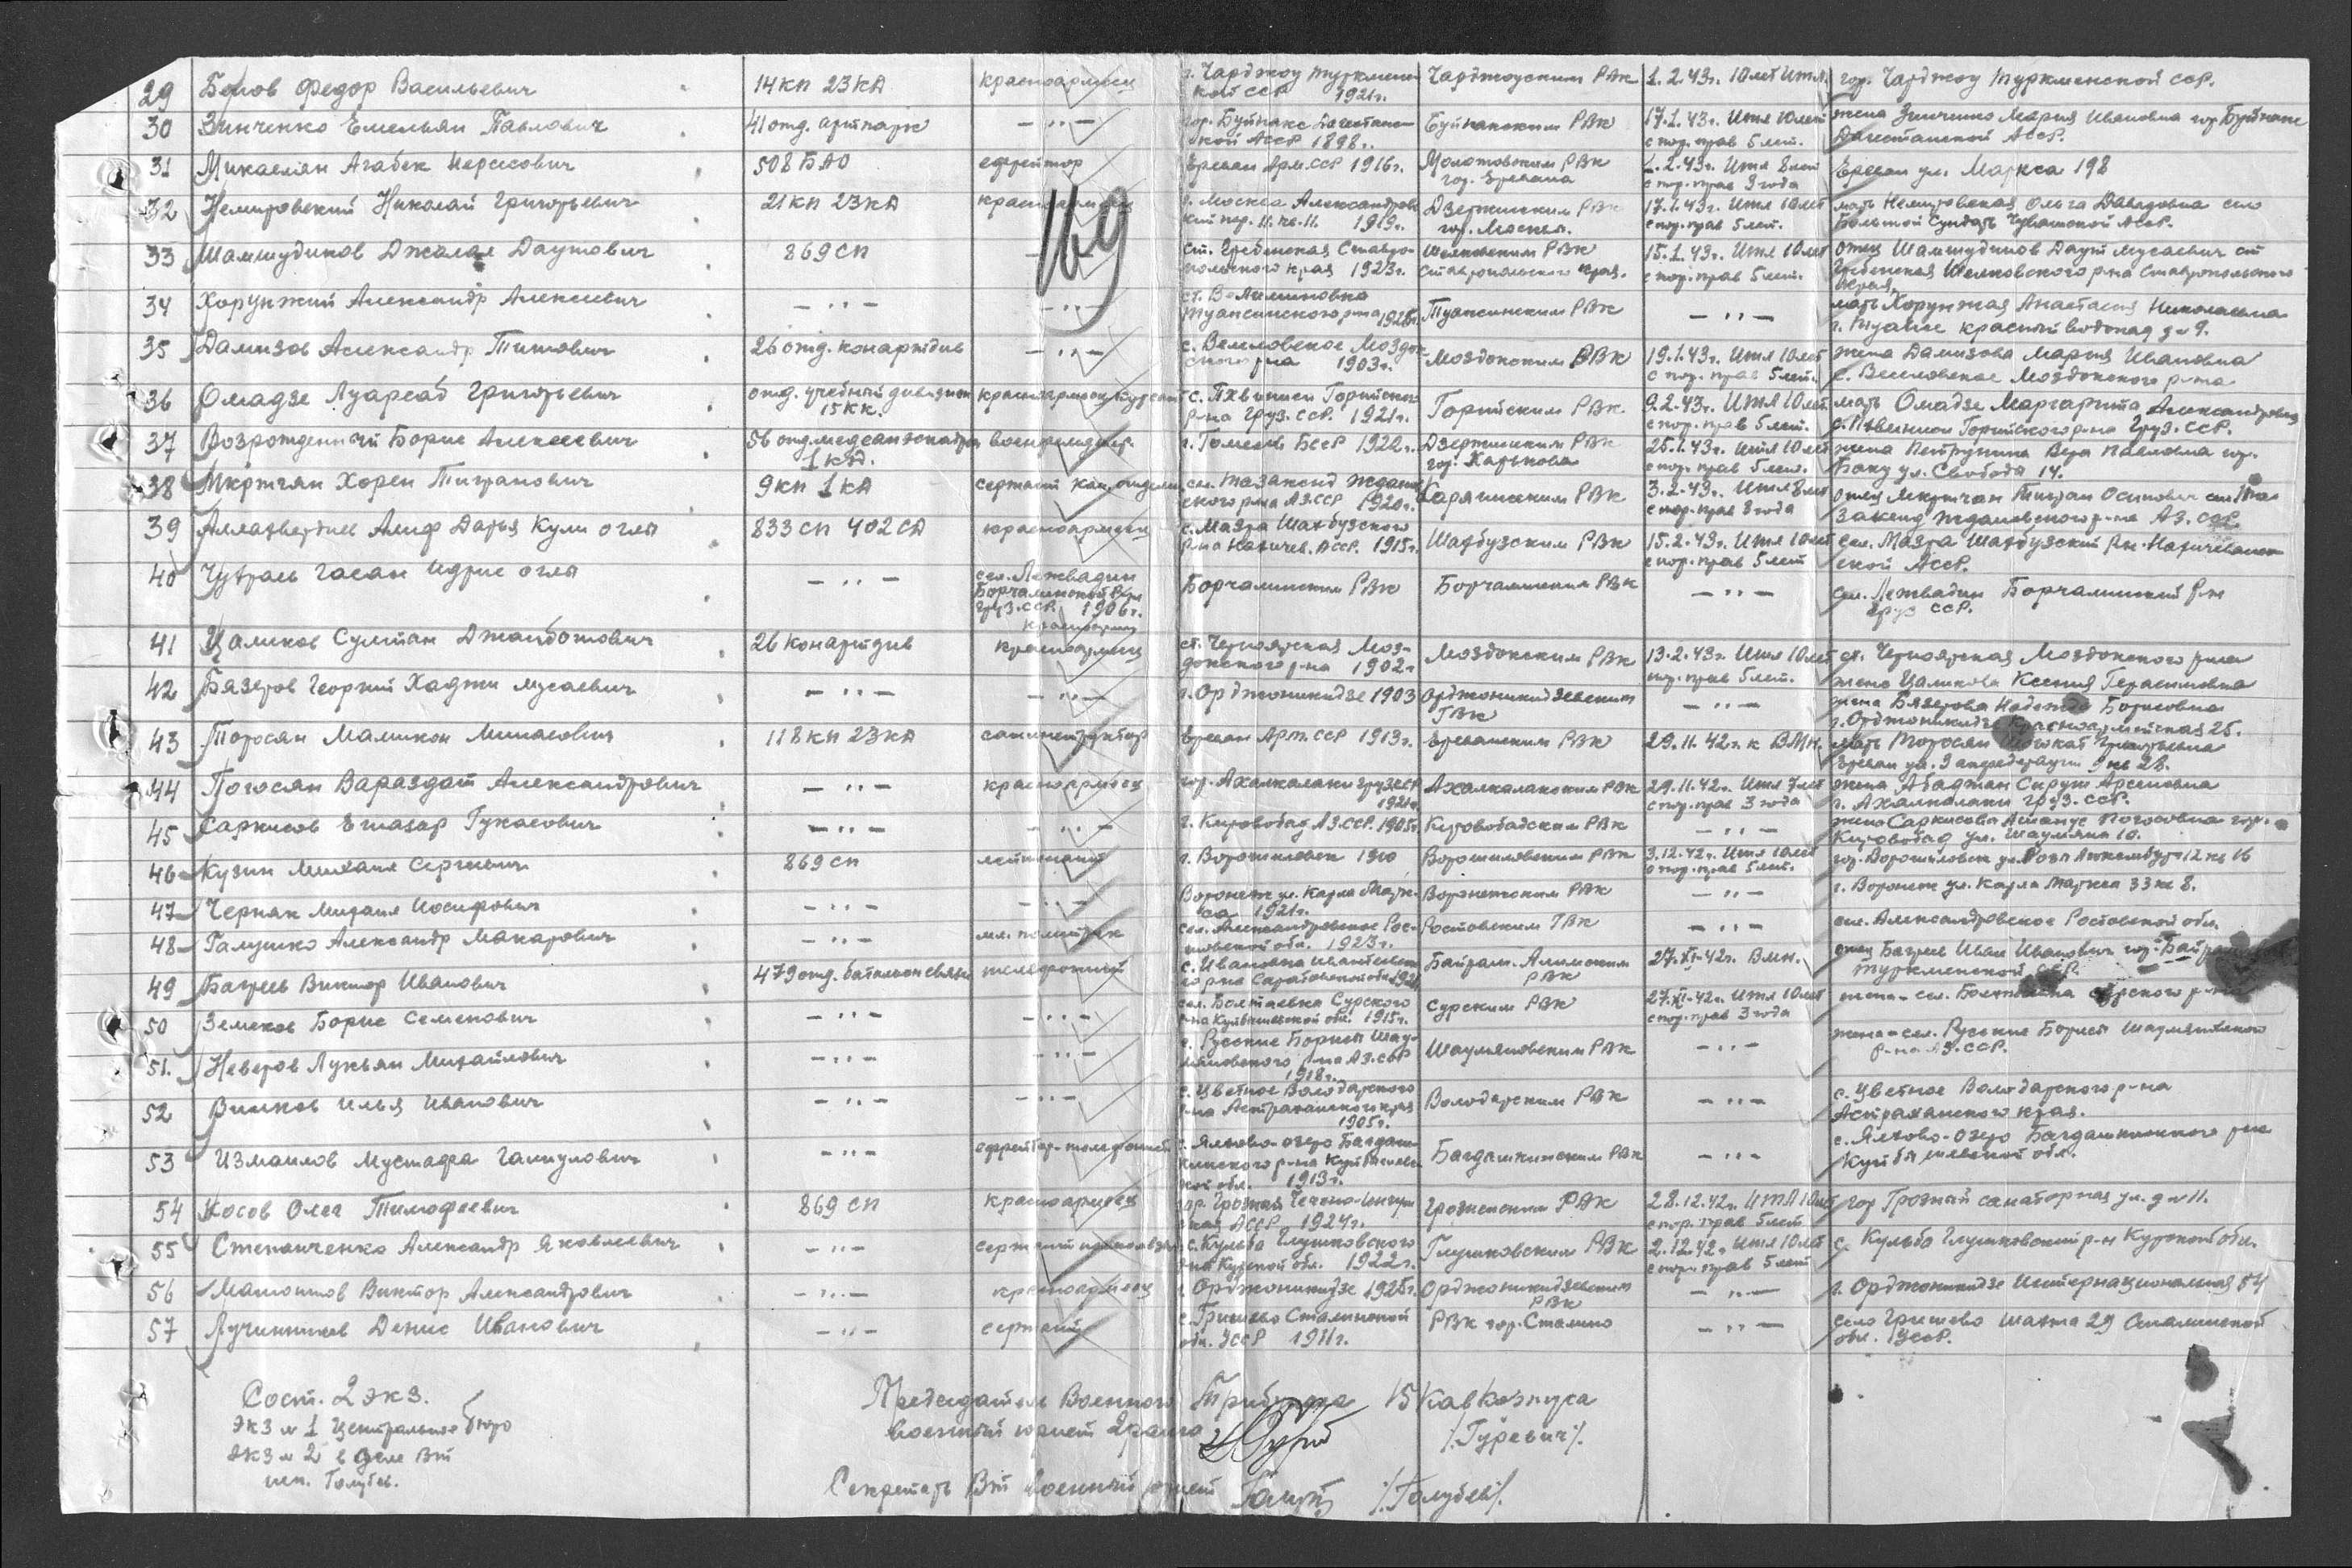 29 Белов Федор Васильевич 14 кп 23 КА красноармеец г. Чарджоу Туркмен- Чарджоуским РВК 1.2.43г. 10 лет итл гор. Чарджоу Туркменской ССР.
ской ССР 1921г.
30 Зинченко Емельян Павлович 41 отд. артпарк — " — гор. Буйнакс Дагестан- Буйнакским РВК 17.1.43г. Итл 10 лет жена Зинченко Мария Ивановна гор. Буйнакс
ской АССР 1898г. с пор. прав 5 лет. Дагестанской АССР.
31 Микаелян Агабек Нерсесович 508 БАО ефрейтор Ереван Арм. ССР 1916г. Молотовским РВК 2.43г. Итл 8 лет Ереван ул. Маркса 198
гор. Еревана с пор. прав 3 года
32 Немировский Николай Григорьевич 21 кп 23 КА красноармеец г. Москва Александров- Дзержинским РВК 17.1.43г. Итл 10 лет мать Немировская Ольга Давыдовна село
кий пер. 11 кв. 11. 1919г. гор. Москвы. с пор. прав 5 лет. Большой Сундырь Чувашской АССР.
169
33 Шамшудинов Джалал Даутович 869 сп ст. Гребенская Ставро- Шелковским РВК 15.1.43г. Итл 10 лет отец Шамшудинов Даут Мусаевич ст
польского края 1923г. Ставропольского края. с пор. прав 5 лет. Гребенская Шелковского р-на Ставропольского
края.
34 Хорунжий Александр Алексеевич — " — — " — ст.
Туапсинского р-на 1925г. Туапсинским РВК — " — мать Хорунжая Анастасия Николаевна
г. Туапсе красный водопад д. № 9.
35 Дамизов Александр Титович 26 отд. конартдив — " — с. Веселовское Моздок- Моздокским РВК 19.1.43г. Итл 10 лет жена Дамизова Мария Ивановна
ского р-на 1903г. с пор. прав 5 лет. с. Веселовское Моздокского р-на
36 Омадзе Луарсаб Григорьевич отд. учебный дивизион красноармеец курсант с. Пхвениси Горийского Горийским РВК 9.2.43г. Итл 10 лет мать Омадзе Маргарита Александровна
15 кк. р-на Груз. ССР. 1921г. с пор. прав 5 лет. с. Пхвениси Горийского р-на Груз. ССР.
37 Возрожденный Борис Алексеевич 56 отд. медсанэскадрон военфельдшер г. Гомель БССР 1922г. Дзержинским РВК 25.1.43г. Итл 10 лет жена Петрунина Вера Павловна гор.
1 кд. гор. Харькова с пор. прав 5 лет. Баку ул. Свобода 14.
38 Мкртчян Хорен Тигранович 9 кп 1 КА сержант ком. отделен. сел. Тазакенд Жданов- Карягинским РВК 3.2.43г. Итл 8 лет отец Мкртчян Тигран Осипович сел. Та-
ского р-на Аз. ССР 1920г. с пор. прав 3 года закенд Ждановского р-на Аз. ССР
39 Аллахвердиев Алиф Дарья Кули оглы 833 сп 402 СД красноармеец с. Мазра Шахбузского Шахбузским РВК 15.2.43г. Итл 10 лет сел. Мазра Шахбузский р-н Нахичеван-
р-на Нахичев. АССР. 1915г. с пор. прав 5 лет ской АССР.
40 Гасан Идрис оглы — " — сел. Лежбадин Борчалинским РВК Борчалинским РВК — " — сел. Лежбадин Борчалинский р-н
Борчалинский р-н Груз ССР.
Груз. ССР. 1906г.
красноармеец
41 Цаликов Султан Джамботович 26 конартдив красноармеец ст. Черноярская Моз- Моздокским РВК 13.2.43г. Итл 10 лет ст. Черноярская Моздокского р-на
докского р-на 1902г пор. прав 5 лет. жена Цаликова Ксения Герасимовна
42 Бязеров Георгий Хаджи Мусаевич — " — — " — г. Орджоникидзе 1903 Орджоникидзевским — " — жена Бязерова Надежда Борисовна
ГВК г. Орджоникидзе Красноармейская 25.
43 Торосян Мамикон Минасович 118 кп 23 КА санинструктор Ереван Арм. ССР 1913г. Ереванским РВК 29.11.42г. к ВМН. мать Торосян Григорьевна
Ереван ул. 3 9 кв 28.
44 Погосян Вараздат Александрович — " — красноармеец гор. Ахалкалаки Груз ССР Ахалкалакским РВК 29.11.42г. Итл 7 лет жена Абаджан Сируш Арсеновна
1921г. с пор. прав 3 года г. Ахалкалаки Груз. ССР.
45 Саркисов Еглазар Гукасович — " — — " — г. Кировобад Аз. ССР. 1905г. Кировобадским РВК — " — жена Саркисова Погосовна гор.
Кировобад ул. Шаумяна 10.
46 Кузин Михаил Сергеевич 869 сп лейтенант г. Ворошиловск 1910 Ворошиловским РВК 3.12.42г. Итл 10 лет гор. Ворошиловск ул. Розы Люксембург 12 кв 16
с пор. прав 5 лет.
47 Черняк Михаил Иосифович — " — — " — Воронеж ул. Карла Марк- Воронежским РВК — " — г. Воронеж ул. Карла Маркса 33 кв 8.
са 1921г.
48 Галушко Александр Макарович — " — мл. политрук сел. Александровское Рос- Ростовским ГВК — " — сел. Александровское Ростовской обл.
товской обл. 1923г.
49 Багреев Виктор Иванович 479 отд. батальон связи телефонист с. Ивановка Ивантеевск- Байрам-Алимским 27.XI-42г. Вмн. отец Багреев Иван Иванович гор.
ого р-на Саратовской обл. РВК Туркменской ССР.
50 Земсков Борис Семенович — " — — " — сел. Болтаевка Сурского Сурским РВК 27.XI-42г. Итл 10 лет жена - сел. Сурского р-на
р-на Куйбышевской обл. 1915г. с пор. прав 3 года
51. Неверов Лукьян Михайлович — " — — " — с. Русские Борисы Шау- Шаумяновским РВК — " — жена - сел. Русские Борисы Шаумяновского
мяновского р-на Аз. ССР р-на Аз. ССР.
1918г.
52 Вилков Илья Иванович — " — — " — с. Цветное Володарского Володарским РВК — " — с. Цветное Володарского р-на
р-на Астраханского края Астраханского края.
1905г.
53 Измаилов Мустафа — " — ефрейтор-телефонист с. Ялхово-озеро Багдаш- Багдашкинским РВК — " — с. Ялхово-Озеро Багдашкинского р-на
кинского р-на Куйбышевс- Куйбышевской обл.
кой обл. 1913г.
54 Косов Олег Тимофеевич 869 сп красноармеец гор. Грозный Чечено-Ингуш- Грозненским РВК 28.12.42г. ИТЛ 10 лет гор Грозный санаторная ул. д № 11.
ская АССР 1924г. с пор. прав 5 лет
55 Степанченко Александр Яковлевич — " — сержант с. Кульба Глушковского Глушковским РВК 2.12.42г. Итл 10 лет с. Кульба Глушковский р-н Курской обл.
р-на Курской обл. 1922г. с пор. прав 5 лет
56 Мамонтов Виктор Александрович — " — красноармеец г. Орджоникидзе 1925г. Орджоникидзевским — " — г. Орджоникидзе Интернациональная 54
РВК
57 Лучинников Денис Иванович — " — сержант с. Гришево Сталинской РВК гор. Сталино — " — село Гришево шахта 29 Сталинской
обл. УССР 1911г. обл. УССР.
Сост. 2 экз.
Экз № 1 Центральное бюро
Экз № 2 в деле ВТ
исп. Голубев.
Председатель Военного Трибунала 15 Кавкорпуса
военный юрист 2 ранга /Гуревич/.
Секретарь ВТ военный юрист /Голубев/.